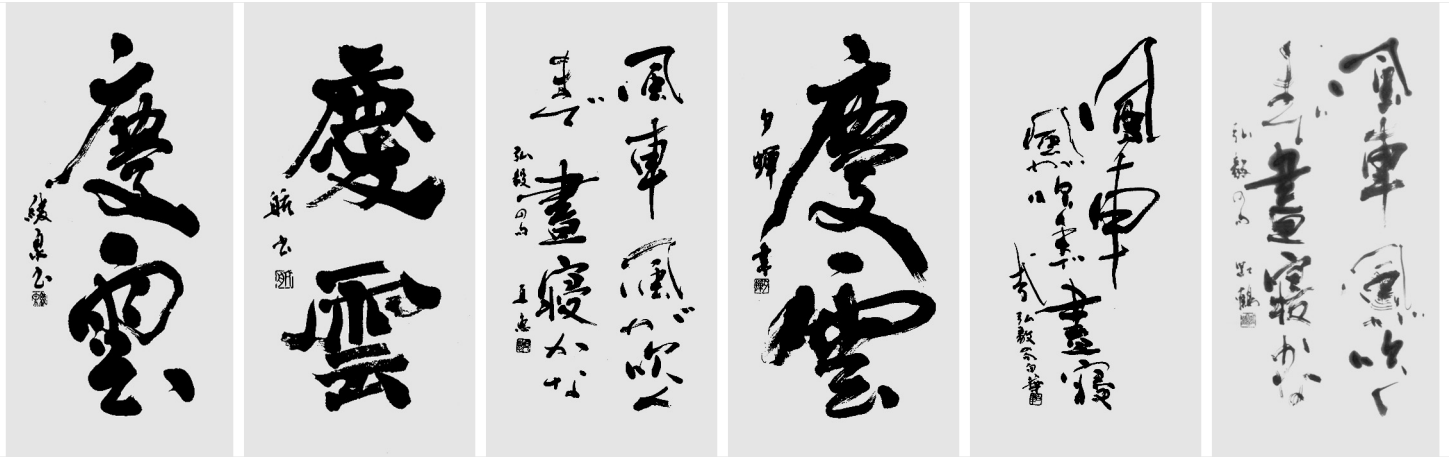 慶雲
綾泉書
慶雲
航書
風車 風が吹く
まで 晝寝かな
弘毅の句
慶雲
夕輝 書
風車
風が吹くまで晝寝
かな 弘毅の句
風車 風が吹く
まで 晝寝かな
弘毅の句